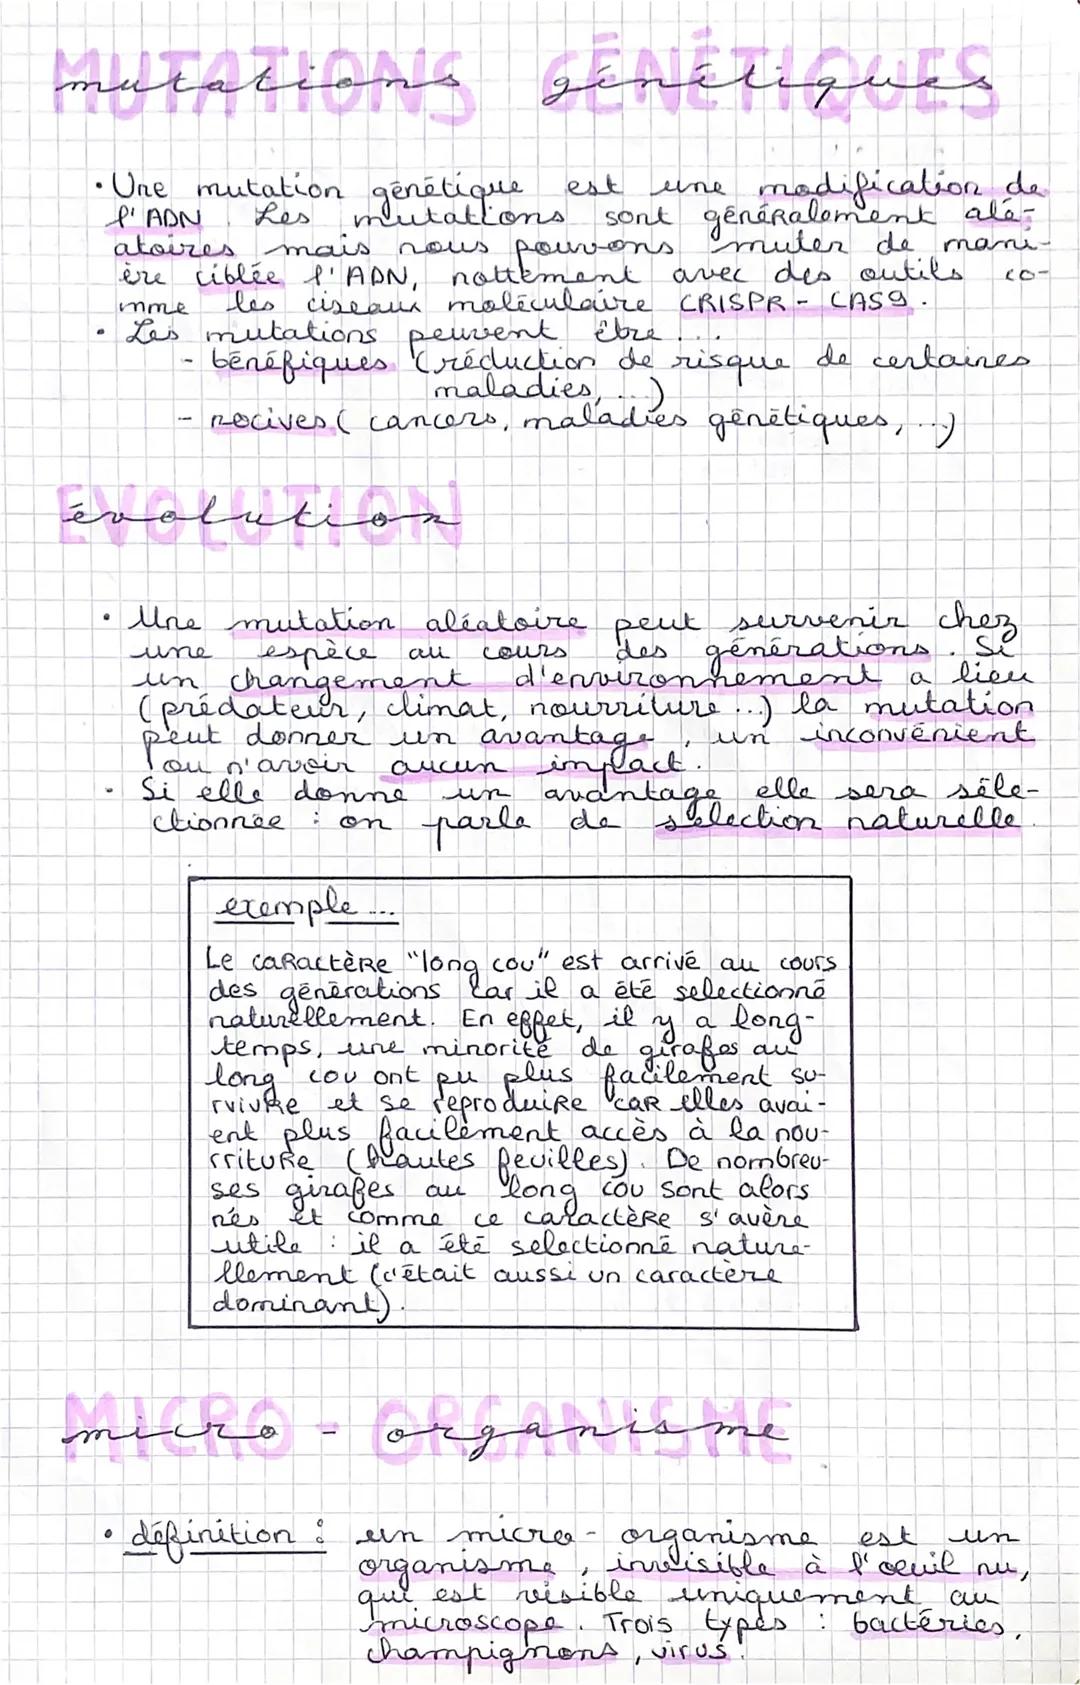 MUTATIONS GÉNÉTIQUES
mutations génétiques
• Une mutation génétique est une modification de
l'ADN. Les mutations sont généralement alé-
atoires mais nous pouvons muter de mani-
ère ciblée l'ADN, nottement avec des outils co-
mme les ciseaux moléculaire CRISPR - CAS9.
• Les mutations peuvent être ...
- bénéfiques (réduction de risque de certaines
maladies, ...)
- nocives ( cancers, maladies génétiques, ...)
ÉVOLUTION
évolution
• Une mutation aléatoire peut survenir chez
une espèce au cours des générations. Si
un changement d'environnement a lieu
(prédateur, climat, nourriture ...) la mutation
peut donner un avantage, un inconvénient
ou n'avoir aucun impact.
• Si elle donne un avantage elle sera séle-
ctionnée : on parle de sélection naturelle.
exemple ...
Le caractère "long cou" est arrivé au cours
des générations car il a été selectionné
naturellement. En effet, il y a long-
temps, une minorité de girafes au
long cou ont pu plus facilement su-
rvivre et se reproduire car elles avai-
ent plus facilement accès à la nou-
rriture (hautes feuilles). De nombreu-
ses girafes au long cou sont alors
nés et comme ce caractère s'avère
utile : il a été selectionné nature-
llement (c'était aussi un caractère
dominant).
MICRO - ORGANISME
micro - organisme
• définition : un micro - organisme est un
organisme, invisible à l'oeuil nu,
qui est visible uniquement au
microscope. Trois types : bactéries,
champignons, virus.